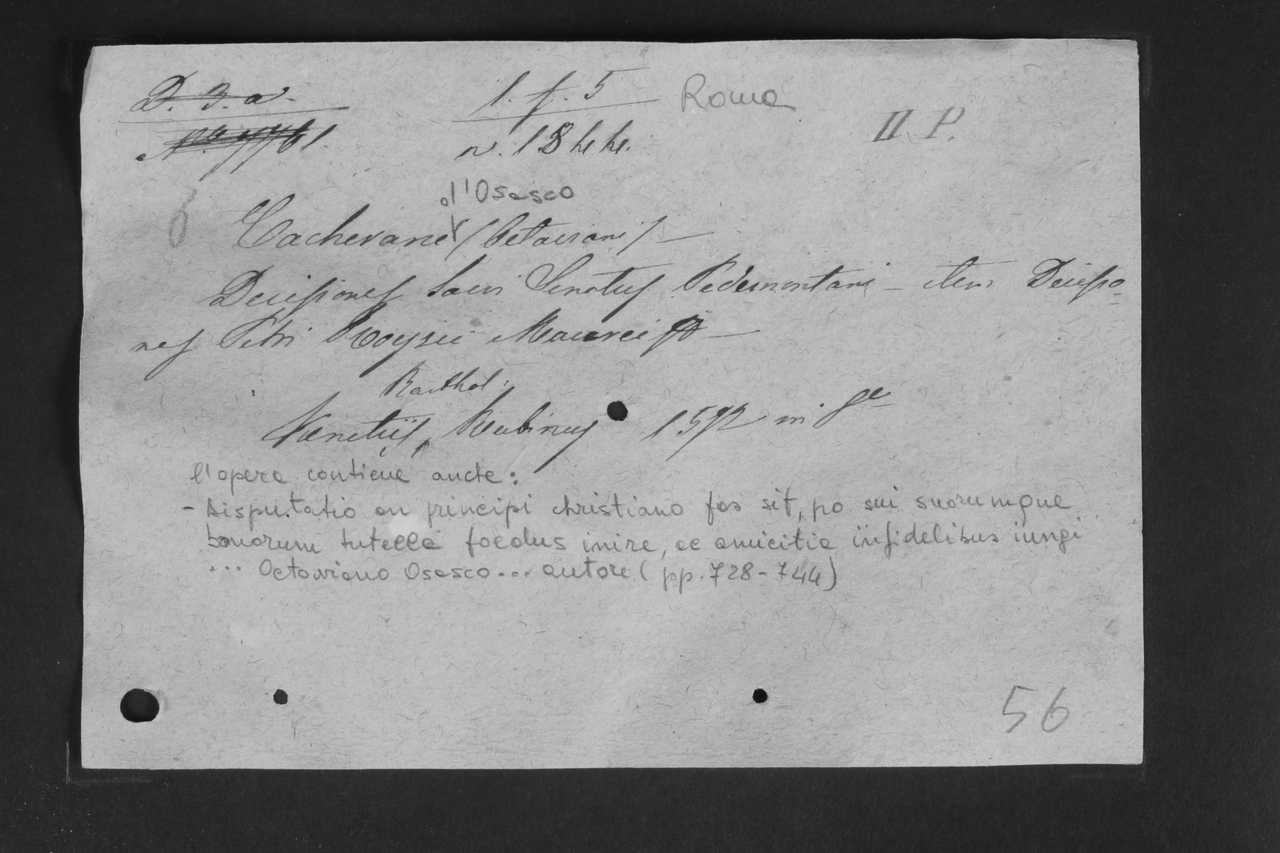 D. 3. a. 1. f. 5 Roma II P.
n. 18
d'Osasco
Cacherane (Octaviani)
Decisiones Sacri Senatus Pedemontani - item Decisio-
nes Petri Roysii Maurei
Barthol.
Venetiis, Rubinus 1592 in
l'opera contiene anche:
- Disputatio an principi christiano fas sit, pro sui suorumque
bonorum tutella foedus inire, ac amicitia infidelibus iungi
... Octaviano Osasco... autore (pp. 728-744)
56